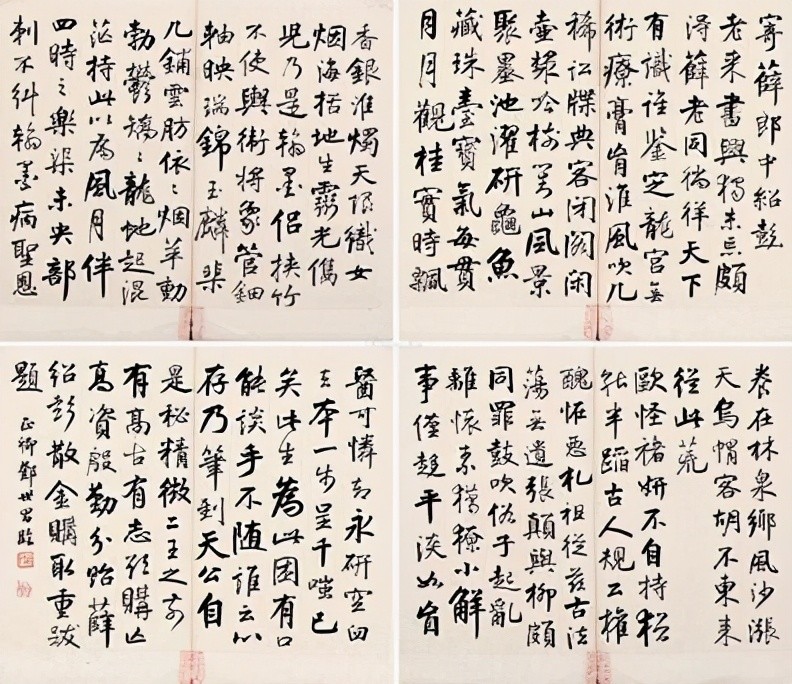 寄薛郎中紹彭
老来書興獨未忘頗
得薛老同徜徉天下
有識誰鑒定龍宮無
術療膏肓淮風吹几
稀訟牒典客閉閣閑
壺漿吟樹對山風景
聚墨池濯研龜魚
藏珠臺寶氣每貫
月月觀桂實時飄
香銀淮燭天限織女
烟海括地生靈光儁
児乃是翰墨侶挾竹
不使輿術將象管鈿
軸映瑞錦玉麟棐
几鋪雲肪依〻烟華動
勃鬱矯〻龍蛇起混
茫持此以為風月伴
四時之樂渠未央部
刺不糾翰墨病聖恩
養在林泉鄉風沙漲
天烏帽客胡不東来
從此荒
歐怪褚妍不自持猶
能半蹈古人規公權
醜怪惡札祖從茲古法
蕩無遺張顛與柳頗
同罪鼓吹俗子起亂
離懷素獦獠小解
事僅趨平淡如盲
醫可憐智永研空臼
去本一步呈千嗤已
矣此生為此困有口
能談手不随誰云心
存乃筆到天公自
是秘精微二王之前
有高古有志欲購亡
高資殷勤分貽薛
紹彭散金購取重跋
題
正卿鄭世臨